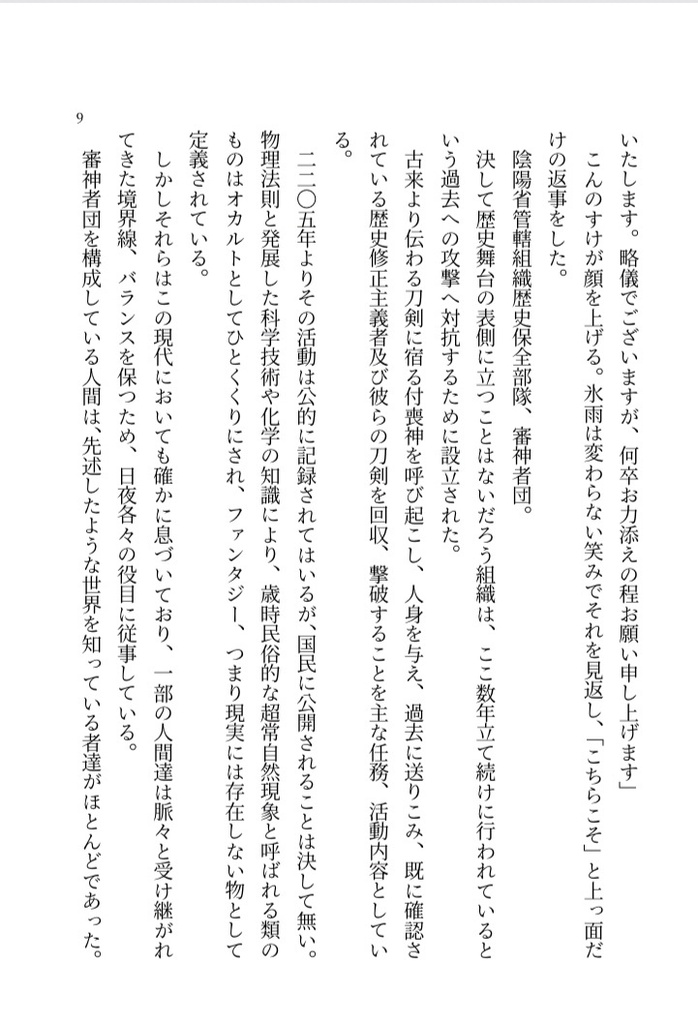 9
いたします。略儀でございますが、何卒お力添えの程お願い申し上げます」
こんのすけが顔を上げる。氷雨は変わらない笑みでそれを見返し、「こちらこそ」と上っ面だ
けの返事をした。
陰陽省管轄組織歴史保全部隊、審神者団。
決して歴史舞台の表側に立つことはないだろう組織は、ここ数年立て続けに行われていると
いう過去への攻撃へ対抗するために設立された。
古来より伝わる刀剣に宿る付喪神を呼び起こし、人身を与え、過去に送りこみ、既に確認さ
れている歴史修正主義者及び彼らの刀剣を回収、撃破することを主な任務、活動内容としてい
る。
二二〇五年よりその活動は公的に記録されてはいるが、国民に公開されることは決して無い。
物理法則と発展した科学技術や化学の知識により、歳時民俗的な超常自然現象と呼ばれる類の
ものはオカルトとしてひとくくりにされ、ファンタジー、つまり現実には存在しない物として
定義されている。
しかしそれらはこの現代においても確かに息づいており、一部の人間達は脈々と受け継がれ
てきた境界線、バランスを保つため、日夜各々の役目に従事している。
審神者団を構成している人間は、先述したような世界を知っている者達がほとんどであった。